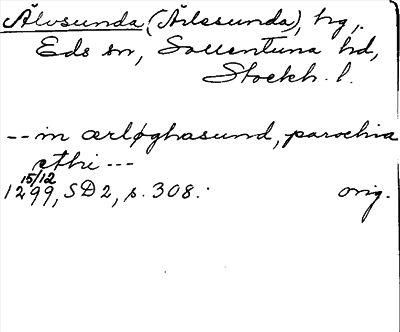 Älvsunda (Älssunda), hg,
Eds sn, Sollentuna hd,
Stockh. l.
-- in ærløghasund, parochia
ethi ---
15/12
1299, SD2, s. 308. orig.